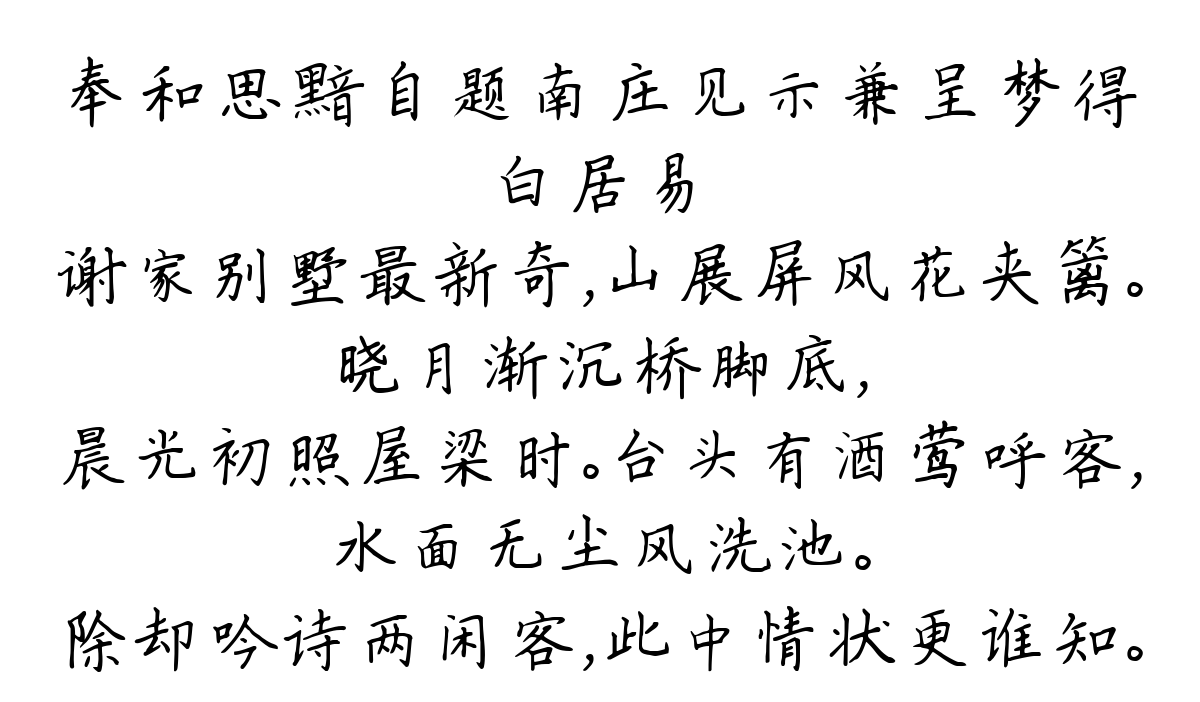 奉和思黯自题南庄见示兼呈梦得
白居易
谢家别墅最新奇,山展屏风花夹篱。
晓月渐沉桥脚底,
晨光初照屋梁时。台头有酒莺呼客,
水面无尘风洗池。
除却吟诗两闲客,此中情状更谁知。